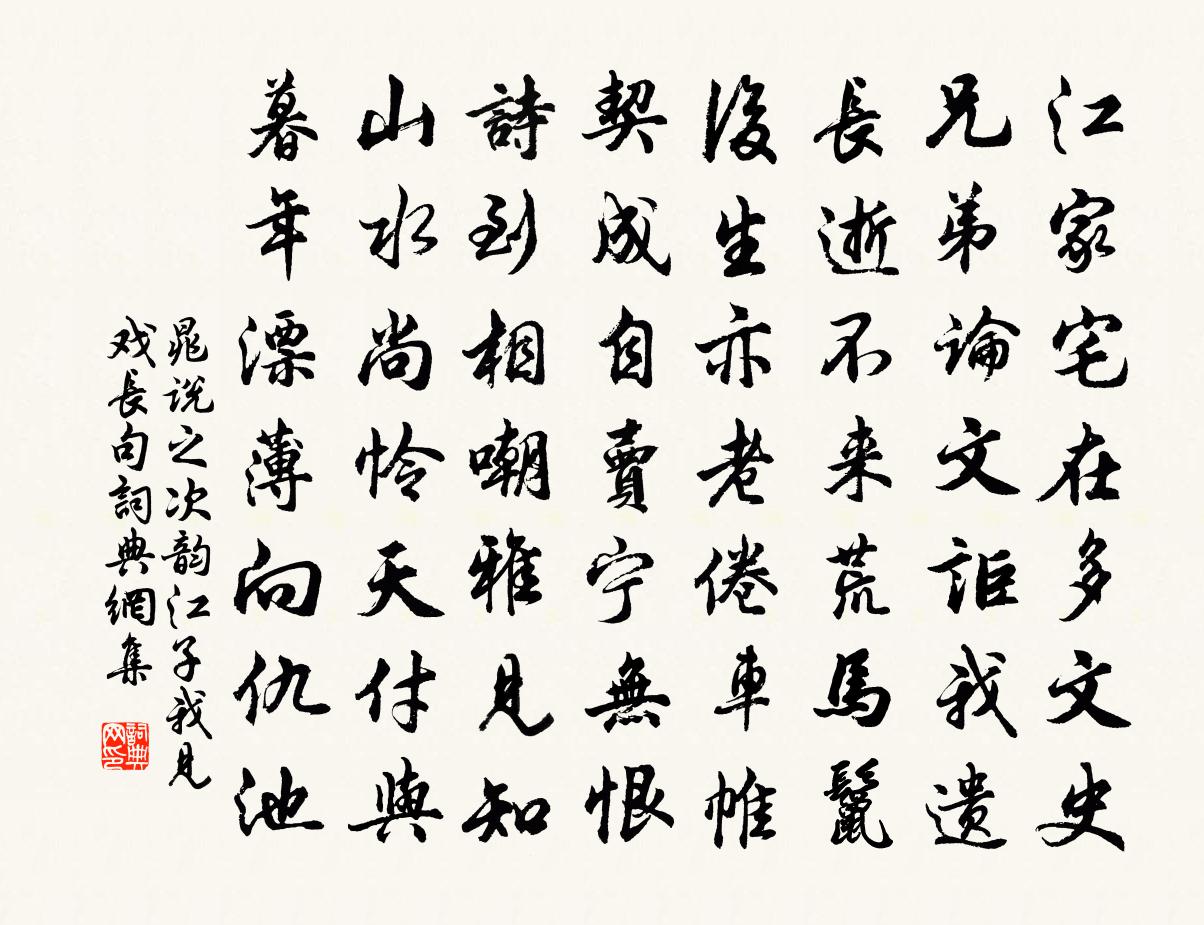 江家宅在多文史
兄弟論文詎我遺
長逝不来荒馬鬣
後生亦老倦車帷
契成自賣宁無恨
詩到相嘲雅見知
山水尚怜天付與
暮年漂薄向仇池
晁说之次韵江子我見
戏長句詞典網集
詞典网印